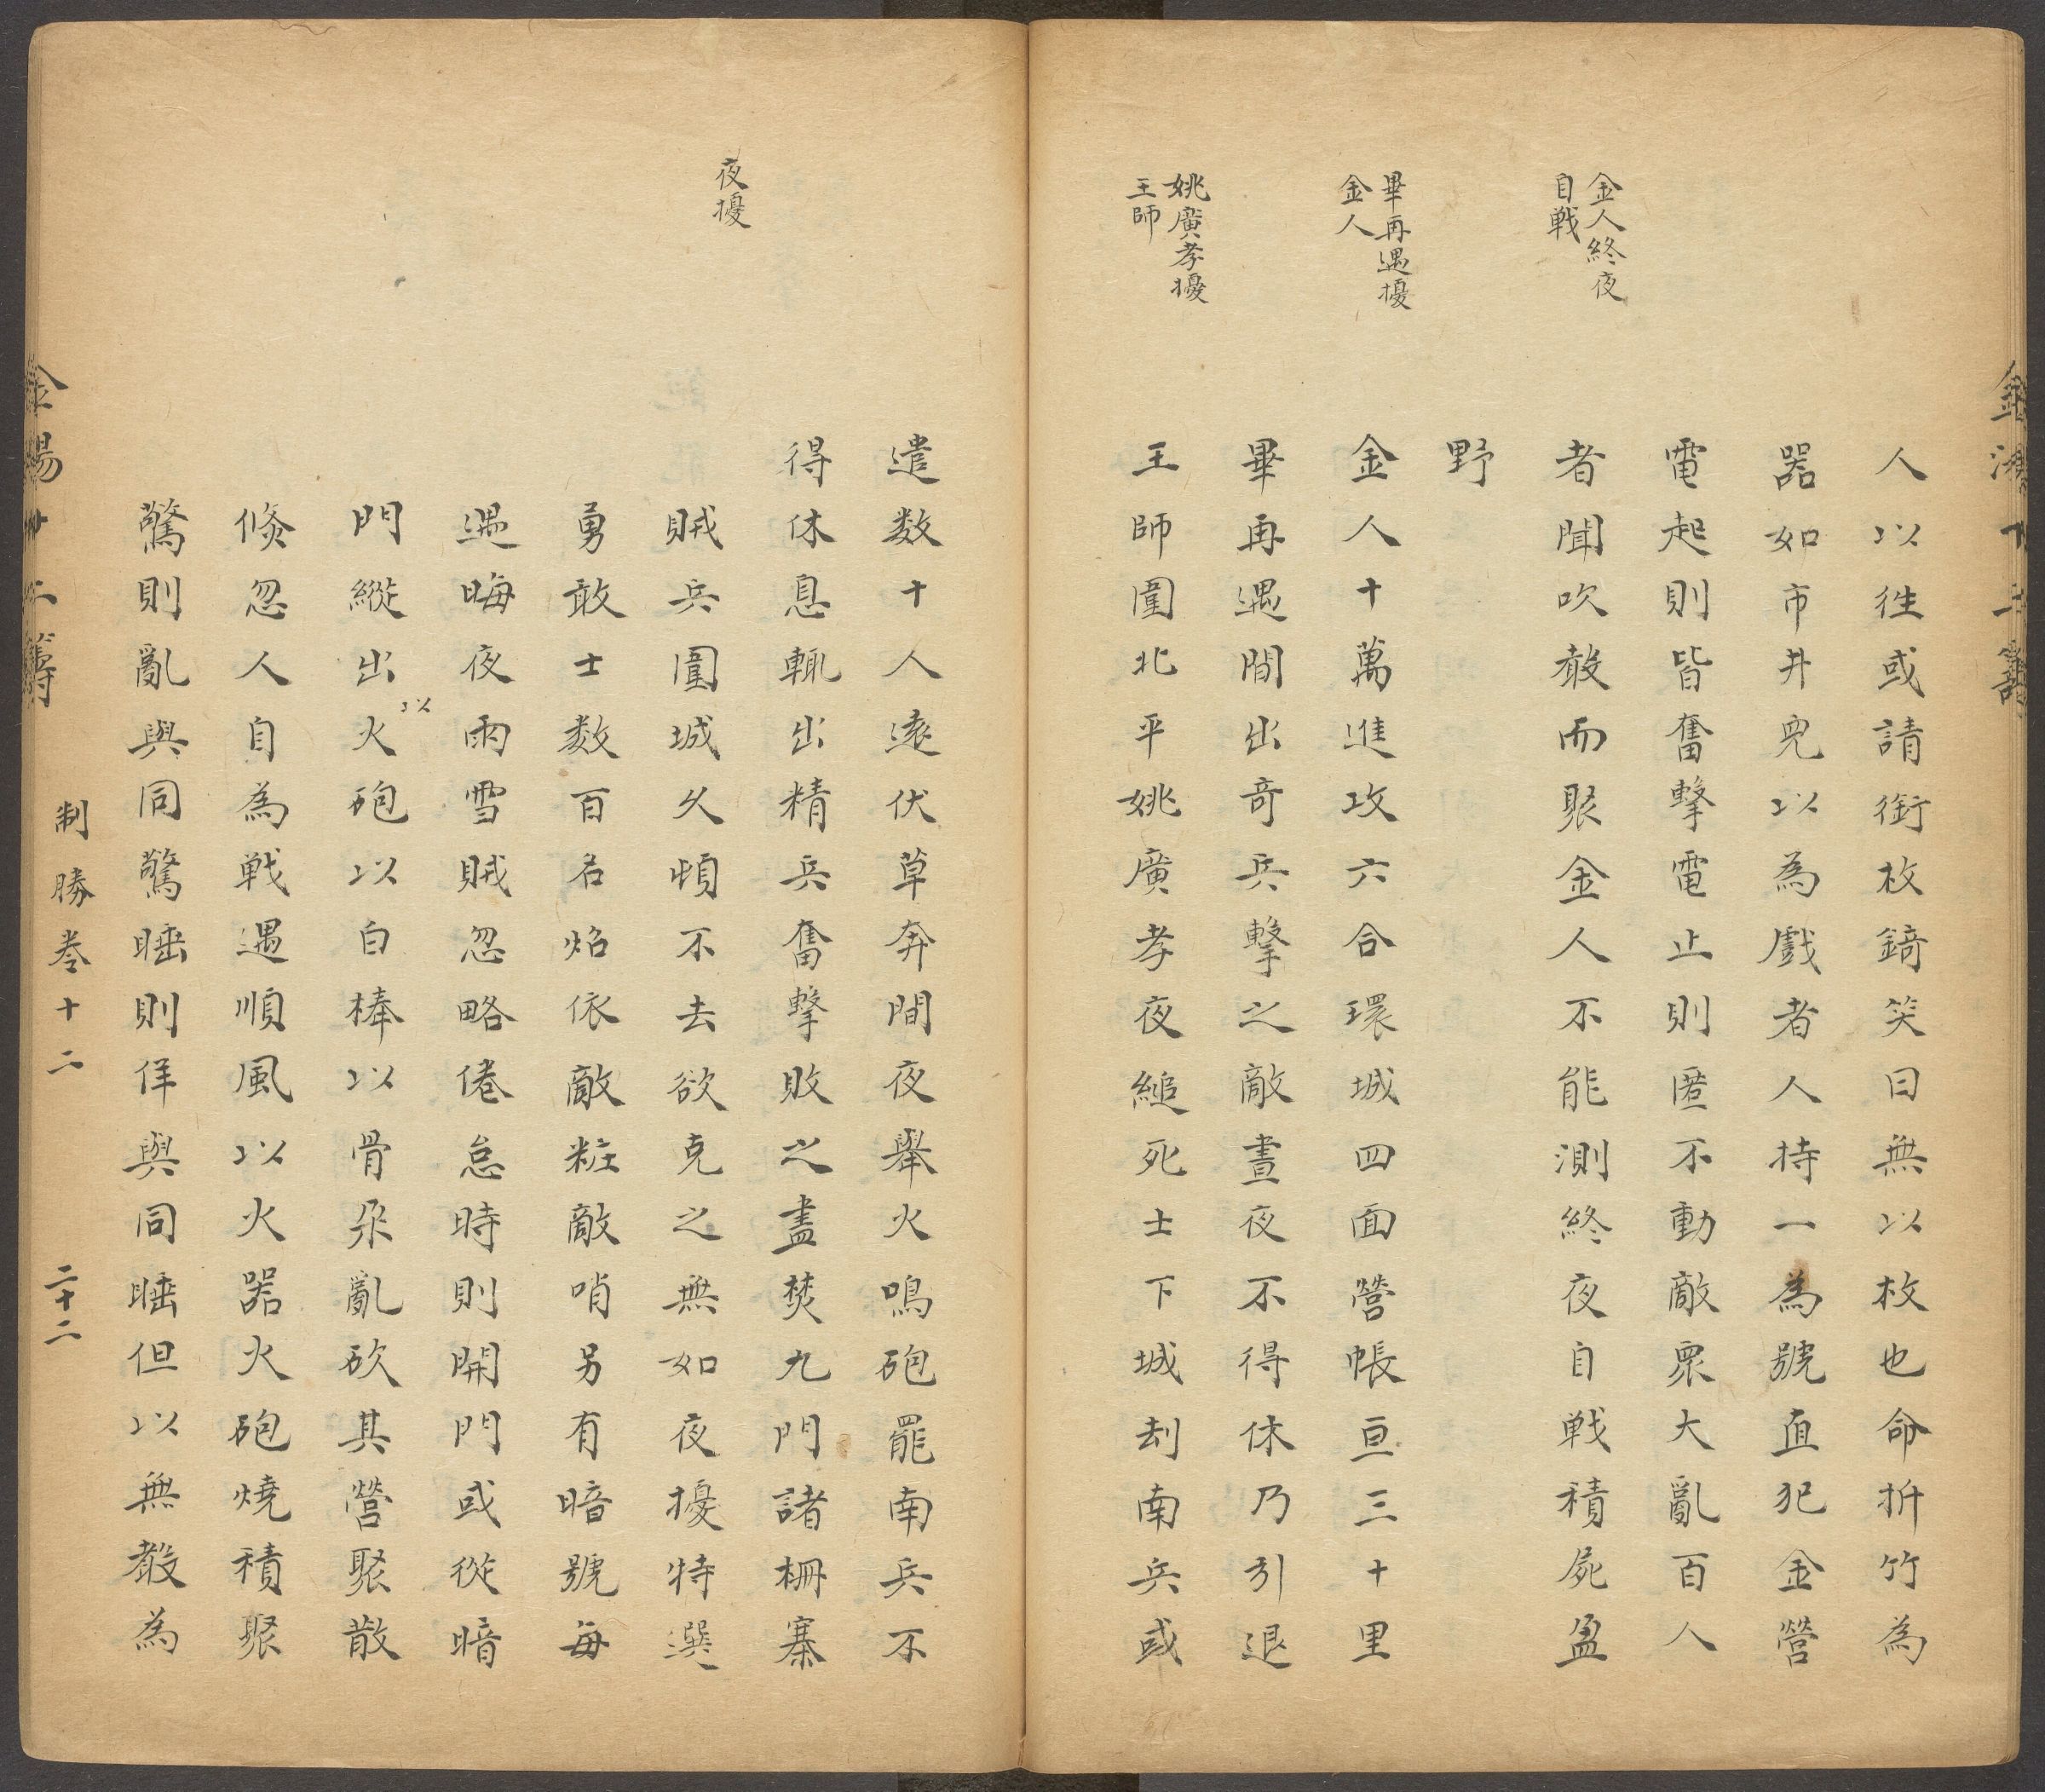 人以徃或請銜枚錡笑曰無以枚也命折竹為
器如市井兒以為戲者人持一為號直犯金營
電起則皆奮擊電止則匿不動敵衆大亂百人
金人終夜
自戦
者聞吹嗀而聚金人不能測終夜自戦積屍盈
野
畢再遇擾
金人
金人十萬進攻六合環城四面營帳亘三十里
畢再遇間出竒兵擊之敵晝夜不得休乃引退
姚廣孝擾
王師
王師圍北平姚廣孝夜縋死士下城刦南兵或
遣数十人遠伏草莽間夜舉火鳴砲罷南兵不
得休息輒出精兵奮擊敗之盡焚九門諸柵寨
夜擾
賊兵圍城久頓不去欲克之無如夜擾特選
勇敢士数百名焰依敵粧敵哨另有暗號每
遇晦夜雨雪賊忽略倦怠時則開門或從暗
門縱出以火砲以白棒以骨朶亂砍其營聚散
倐忽人自為戦遇順風以火器火砲燒積聚
驚則亂與同驚睡則佯與同睡但以無嗀為
金湯十二籌
制勝卷十二
二十二